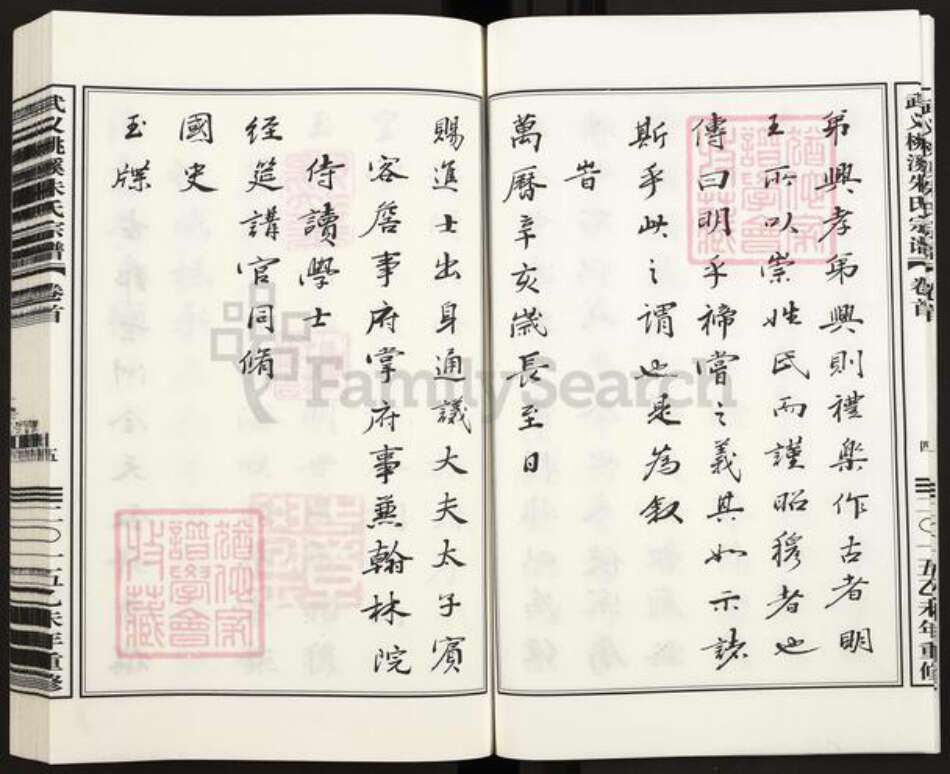 弟興孝弟興則禮樂作古者明
王所以崇姓氏而謹昭穆者也
傳曰明乎禘嘗之義其如示諸
斯乎此之謂也是為叙
旹
萬曆辛亥歲長至日
賜進士出身通議大夫太子賓
客詹事府掌府事兼翰林院
侍讀學士
經筵講官同脩
國史
玉牒
武义桃溪朱氏宗谱【卷首
五
二〇一五乙未年重修
四
二〇一五乙未年重修
FamilySearch